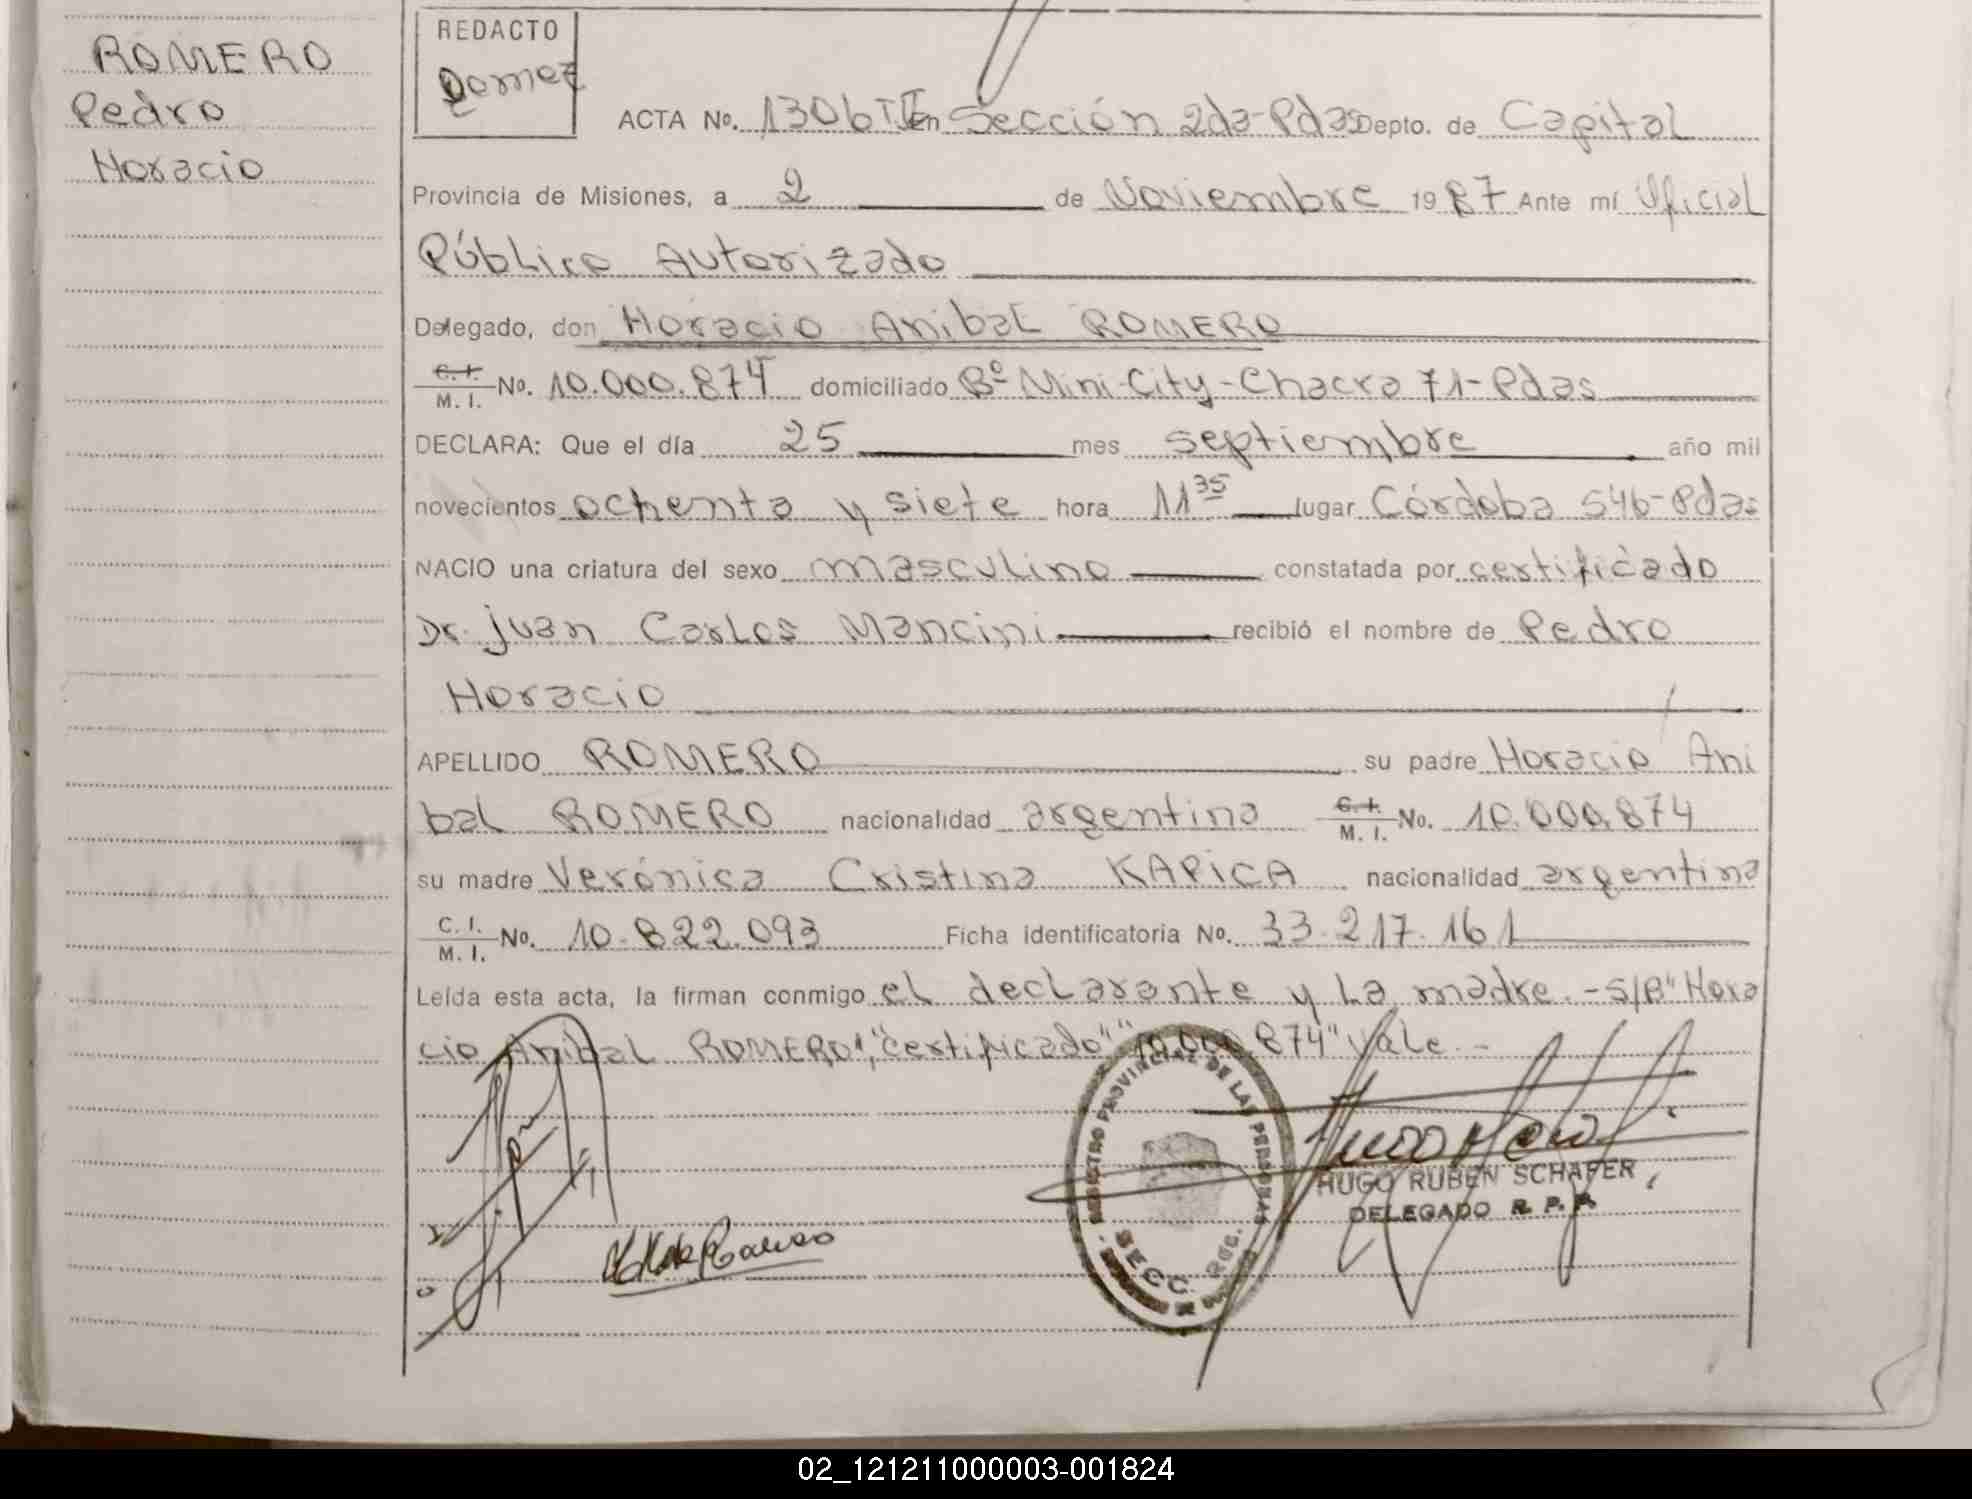 ROMERO
Pedro
Horacio
REDACTO
Gomez
ACTA No. 1306 TIV En Sección 2da-Pdas Depto. de Capital
Provincia de Misiones, a 2 de Noviembre 1987 Ante mí Oficial
Público Autorizado
Delegado, don Horacio Anibal ROMERO
C. I. / M. I. No. 10.000.874 domiciliado Bº Mini-City-Chacra 71-Pdas
DECLARA: Que el día 25 mes septiembre año mil
novecientos ochenta y siete hora 11 35 lugar Córdoba 546-Pdas
NACIO una criatura del sexo masculino constatada por certificado
Dr. Juan Carlos Mancini recibió el nombre de Pedro
Horacio
APELLIDO ROMERO su padre Horacio Ani
bal ROMERO nacionalidad argentina C. I. / M. I. No. 10.000.874
su madre Verónica Cristina KAPICA nacionalidad argentina
C. I. / M. I. No. 10.822.093 Ficha identificatoria No. 33.217.161
Leída esta acta, la firman conmigo el declarante y la madre.-S/B"Hora
cio Anibal ROMERO","certificado""10.000.874"Vale.-
REGISTRO PROVINCIAL DE LAS PERSONAS
SECC. POS.
HUGO RUBEN SCHAFER
DELEGADO R. P. P.
02_121211000003-001824